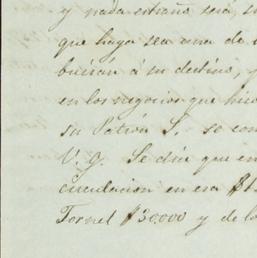 y nada estraño será, s
que haya sea una de
buirán á su destino, y
en los negocios que hiso
su Patrón S. se con
V. g. Se dice que en
circulacion en esa $1
Tornel $30.000 y de lo